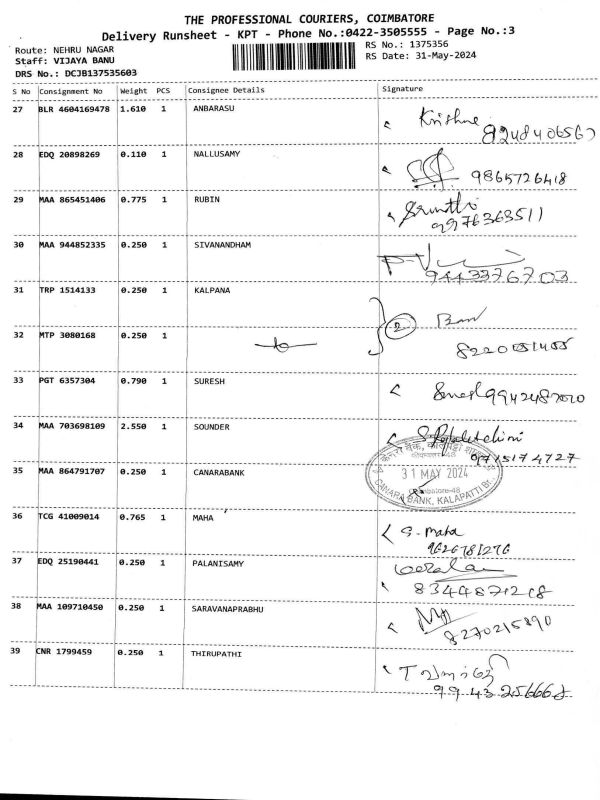 THE PROFESSIONAL COURIERS, COIMBATORE
Delivery Runsheet - KPT - Phone No.:0422-3505555 - Page No.:3
Route: NEHRU NAGAR
RS No.: 1375356
Staff: VIJAYA BANU
RS Date: 31-May-2024
DRS No.: DCJB137535603
S No Consignment No Weight PCS Consignee Details Signature
27 BLR 4604169478 1.610 1 ANBARASU
28 EDQ 20898269 0.110 1 NALLUSAMY
9865726418
29 MAA 865451406 0.775 1 RUBIN
9976363511
30 MAA 944852335 0.250 1 SIVANANDHAM
9443376703
31 TRP 1514133 0.250 1 KALPANA
2
32 MTP 3080168 0.250 1
33 PGT 6357304 0.790 1 SURESH
34 MAA 703698109 2.550 1 SOUNDER
31 MAY 2024
35 MAA 864791707 0.250 1 CANARABANK
CANARA BANK, KALAPATTI Br.
36 TCG 41009014 0.765 1 MAHA
S. Maha
37 EDQ 25190441 0.250 1 PALANISAMY
38 MAA 109710450 0.250 1 SARAVANAPRABHU
8270215890
39 CNR 1799459 0.250 1 THIRUPATHI